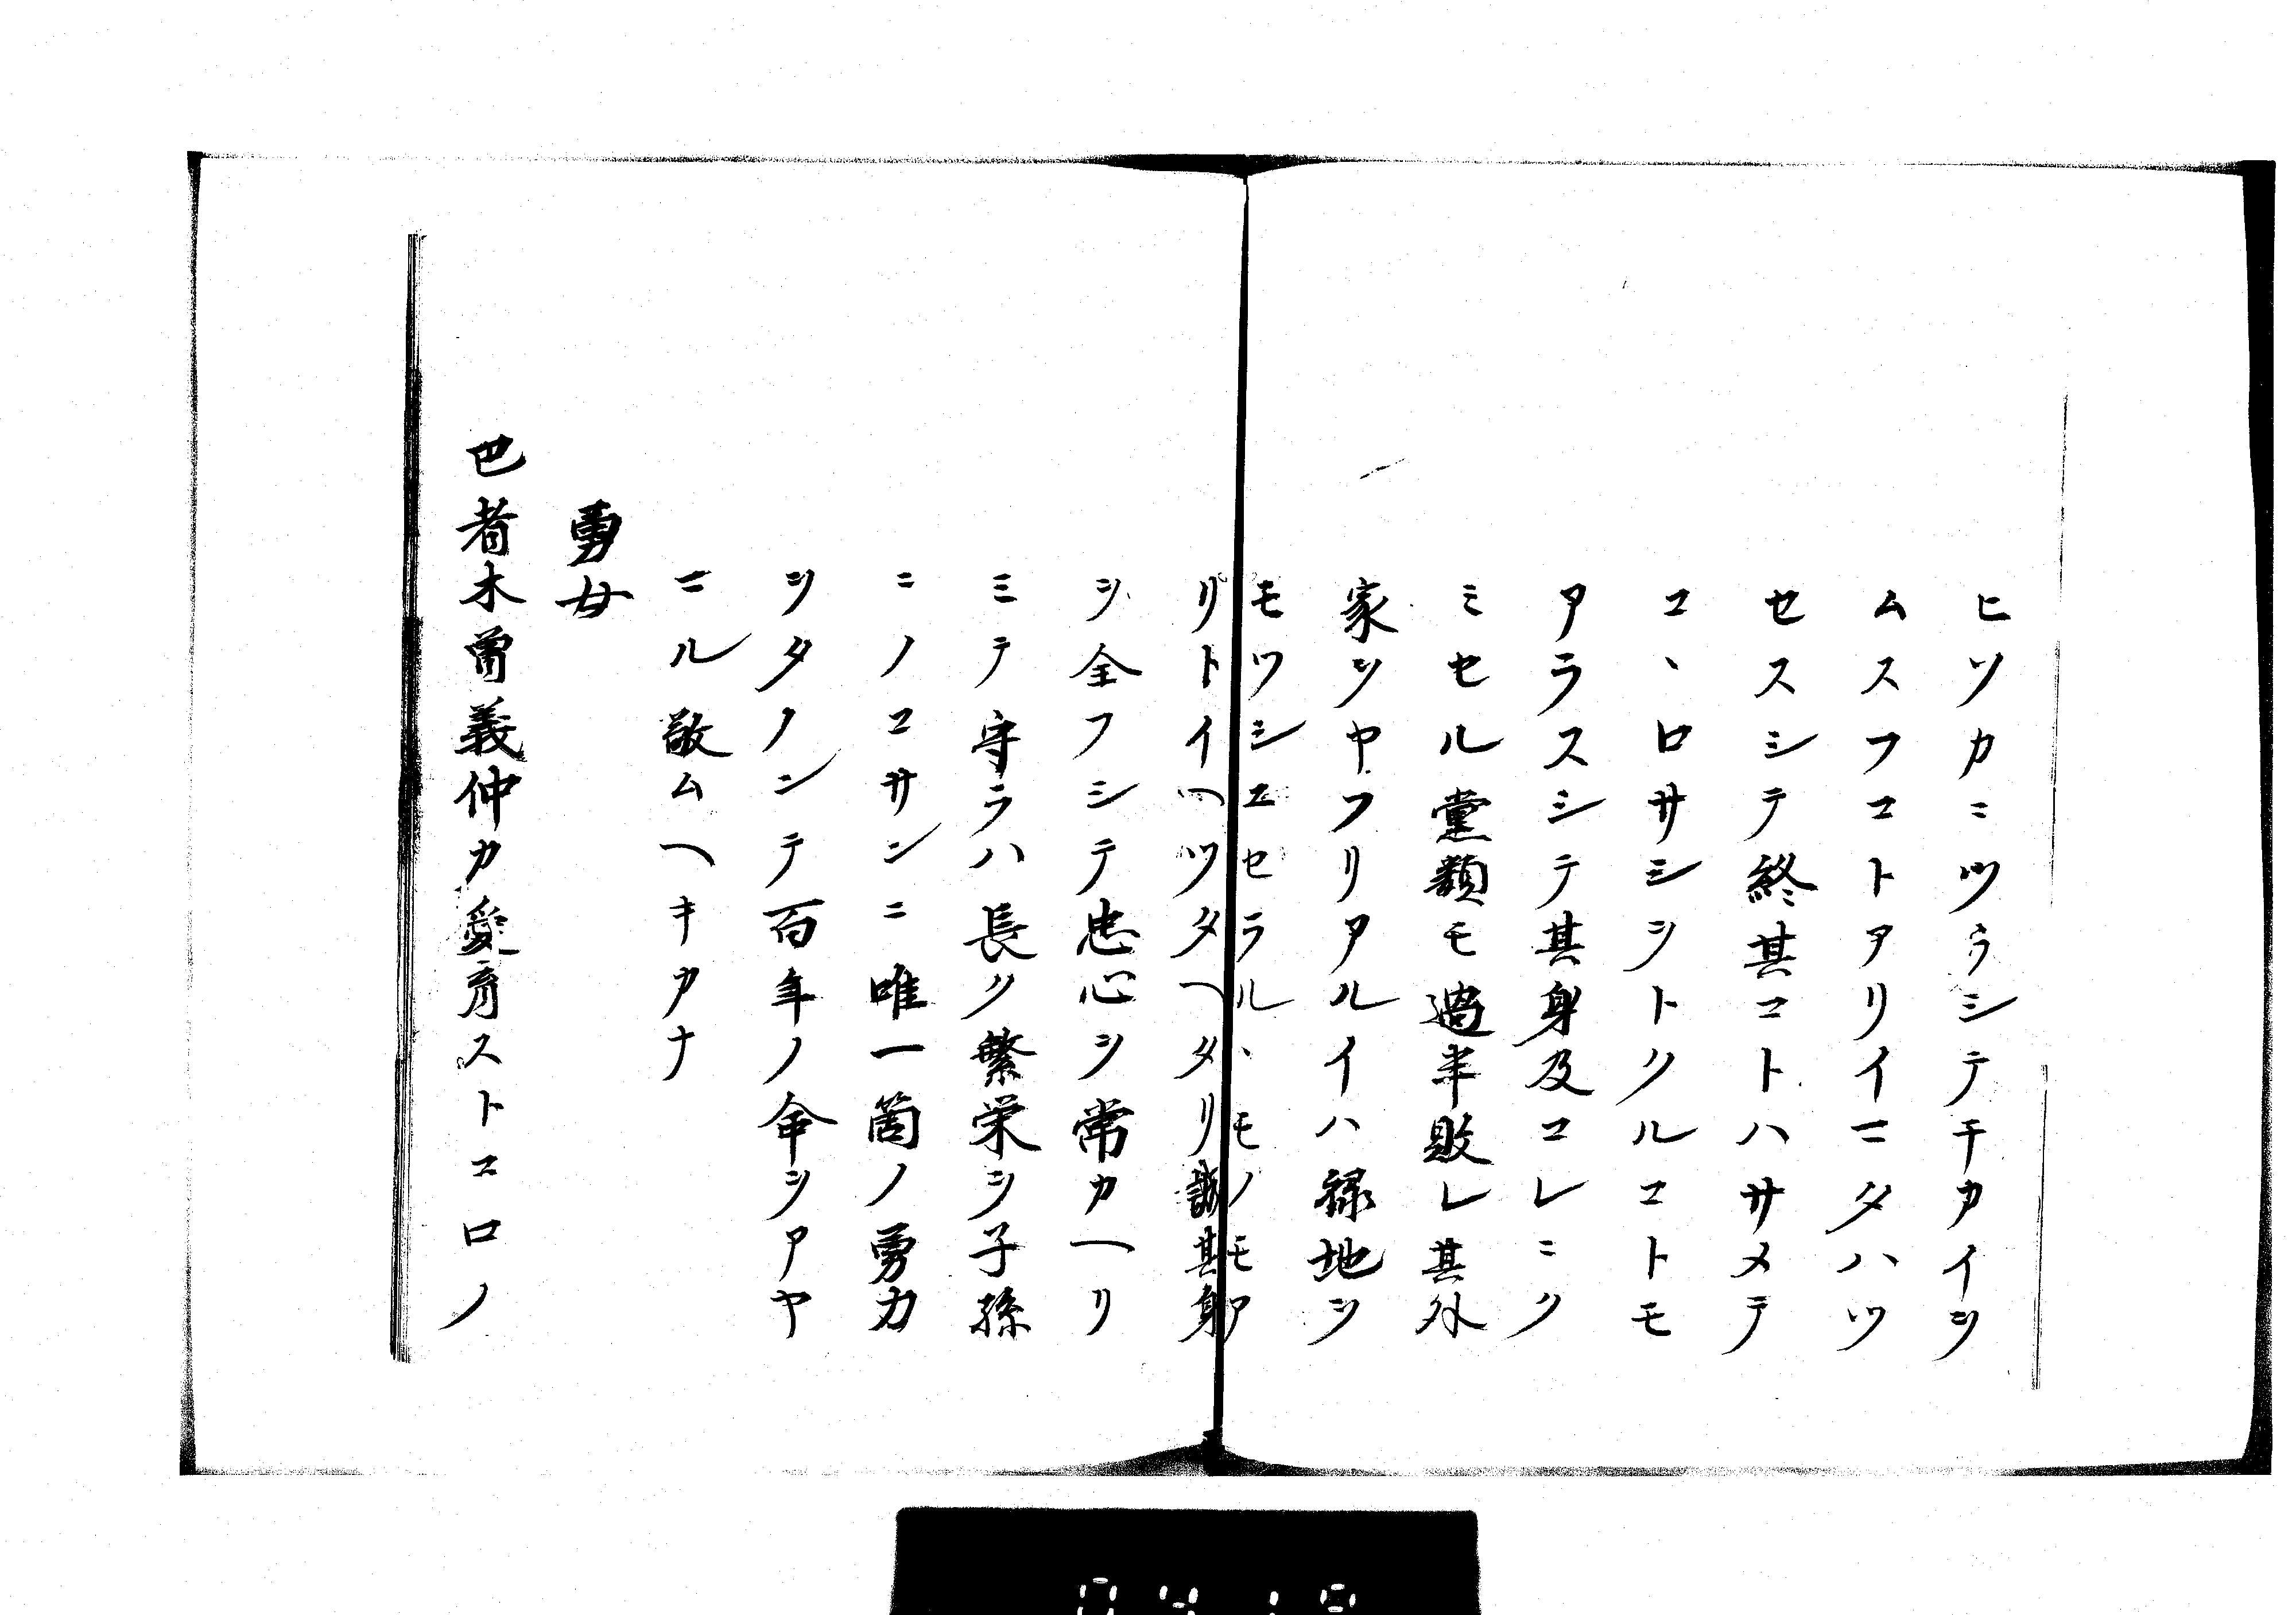 ヒソカニツラシテチカイヲ
ムスフコトアリイニタハツ
セスシテ終其コトハサメテ
コヽロサシヲトクルコトモ
アラスシテ其身及コレニク
ミセル黨類モ過半敗レ其外
家ヲヤフリアルイハ禄地ヲ
モウシエセラルヽモノモア
リトイヘツタヘタリ誠其身
ヲ全フシテ忠心ヲ常カヘリ
ミテ守ラハ長ク繁栄シ子孫
ニノコサンニ唯一箇ノ勇力
ヲタノンテ百年ノ命ヲアヤ
ニル敬ムヘキカナ
勇女
巴者木曽義仲カ愛育ストコロノ